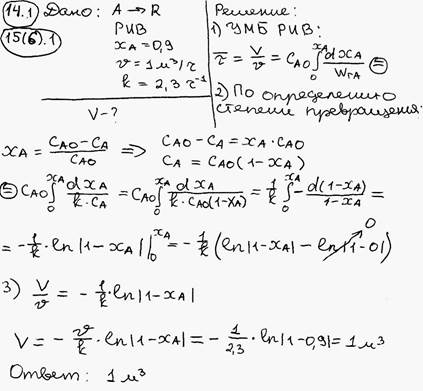 14.1 Дано: A → R
15(б).1 РИВ
x_A = 0,9
v = 1 м³/ч
k = 2,3 ч⁻¹
V - ?
Решение:
1) УМБ РИВ:
τ̅ = V/v = C_A0 ∫₀^{x_A} dx_A/W_rA ⊜
2) По определению
степени превращения:
x_A = (C_A0 - C_A)/C_A0 ⟹ C_A0 - C_A = x_A · C_A0
C_A = C_A0 (1 - x_A)
⊜ C_A0 ∫₀^{x_A} dx_A/(k · C_A) = C_A0 ∫₀^{x_A} dx_A/(k · C_A0(1 - x_A)) = 1/k ∫₀^{x_A} - d(1 - x_A)/(1 - x_A) =
= - 1/k · ln|1 - x_A| |₀^{x_A} = - 1/k (ln|1 - x_A| - ln|1 - 0|) 0
3) V/v = - 1/k · ln|1 - x_A|
V = - v/k · ln|1 - x_A| = - 1/2,3 · ln|1 - 0,9| = 1 м³
Ответ: 1 м³